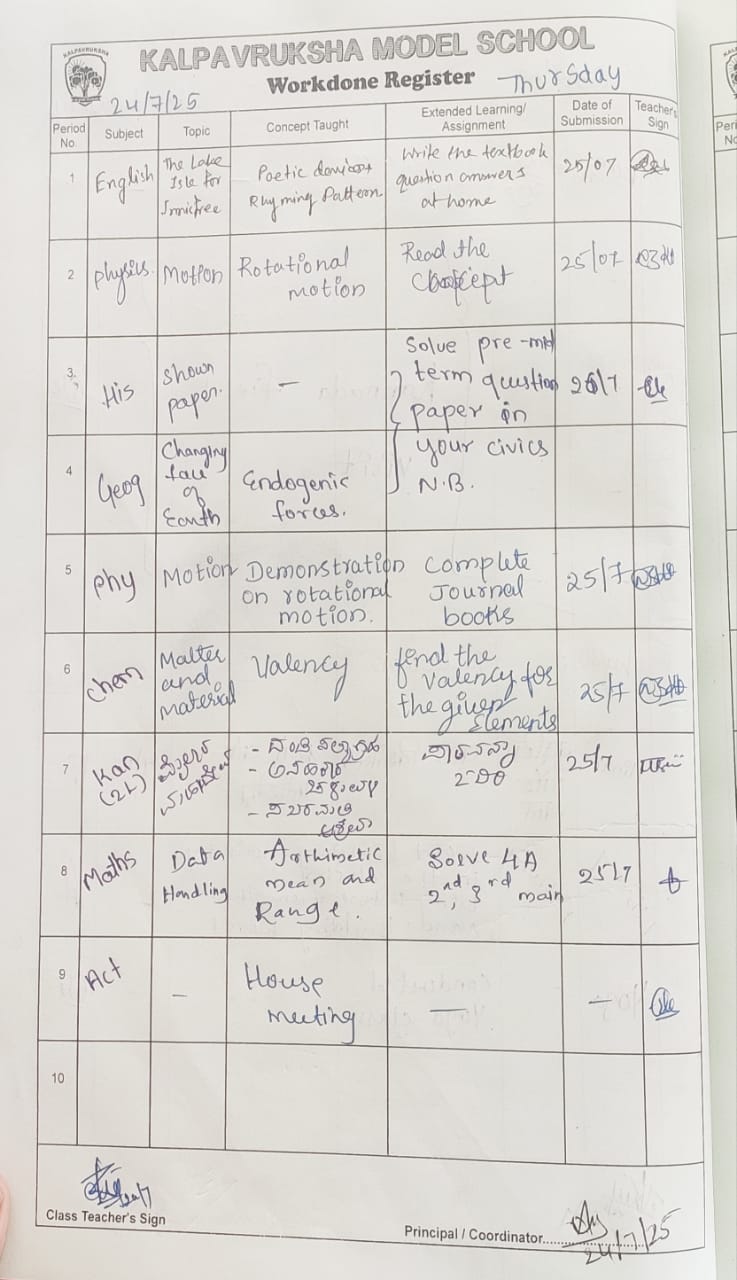 KALPAVRUKSHA
KALPAVRUKSHA MODEL SCHOOL
Workdone Register
Thursday
24/7/25
Period No.
Subject
Topic
Concept Taught
Extended Learning/ Assignment
Date of Submission
Teacher's Sign
1
English
The Lake
Isle for
Innisfree
Poetic
Rhyming Pattern
Write the textbook
question answers
at home
25/07
2
Physics
Motion
Rotational
motion
Read the
25/07
3
His
Shown
paper.
—
Solve pre-mid
term question
paper in
your civics
N.B.
26/7
4
Geog
Changing
face
of
Earth
Endogenic
forces.
5
Phy
Motion
Demonstration
on rotational
motion.
Complete
Journal
books
25/7
6
Chem
Matter
and
material
Valency
find the
valency for
the given
elements
25/7
7
Kan
(2L)
25/7
8
Maths
Data
Handling
Arthimetic
mean and
Range.
Solve 4A
2nd, 3rd main
25/7
9
Act
—
House
meeting
—
—
10
Class Teacher's Sign
Principal / Coordinator
24/7/25